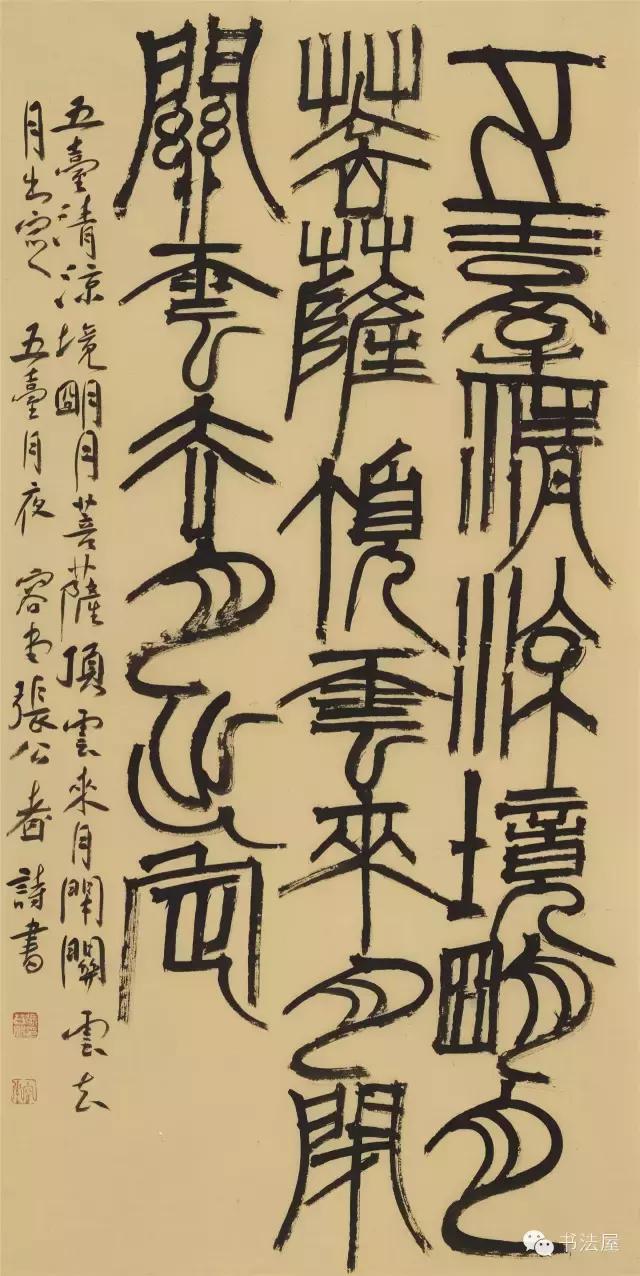 五臺清涼境朙月
菩薩頂雲來月閉
關雲去月出定
五臺清涼境朙月菩薩頂雲來月閉關雲去
月出定 五臺月夜 容堂張公者詩書
书法屋